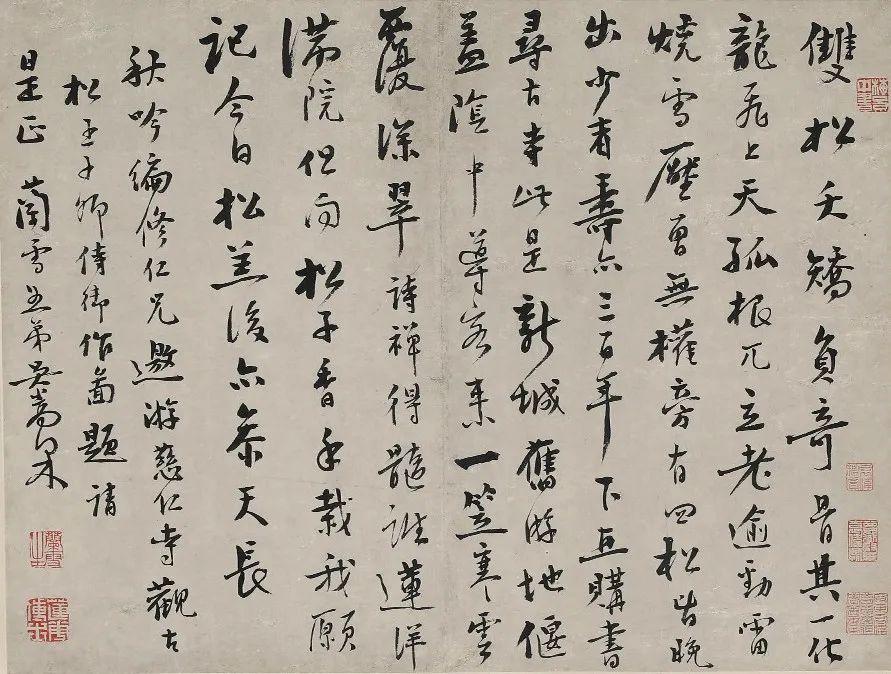 雙松夭矯負奇骨其一化
龍飛上天孤根兀立老逾勁雷
燒雪壓曾無權旁有四松皆晚
出少者壽亦三百年下直購書
尋古寺此是新城舊游地偃
蓋陰中導客來一笠寒雲
覆深翠詩禪得髓誰蓮洋
滿院但聞松子香手栽我願
記今日松後亦參天長
秋吟編修仁兄邀游慈仁寺觀古
松王子卿侍御作圖題請
是正 蘭雪愚弟吳嵩梁